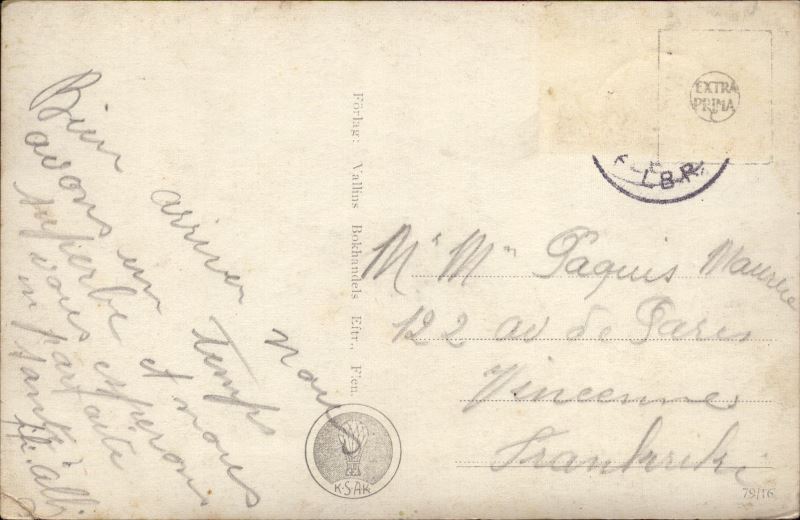 Bien arriver nous
avons un temps
superbe et nous
vous esperons
en parfaite
santé
Förlag: Vallins Bokhandels Eftr., Flen.
K-SAK
EXTRA
PRIMA
LBR
Mr Mm Paquis Maurice
122 av de Paris
Vincenne
Frankriki
79/16